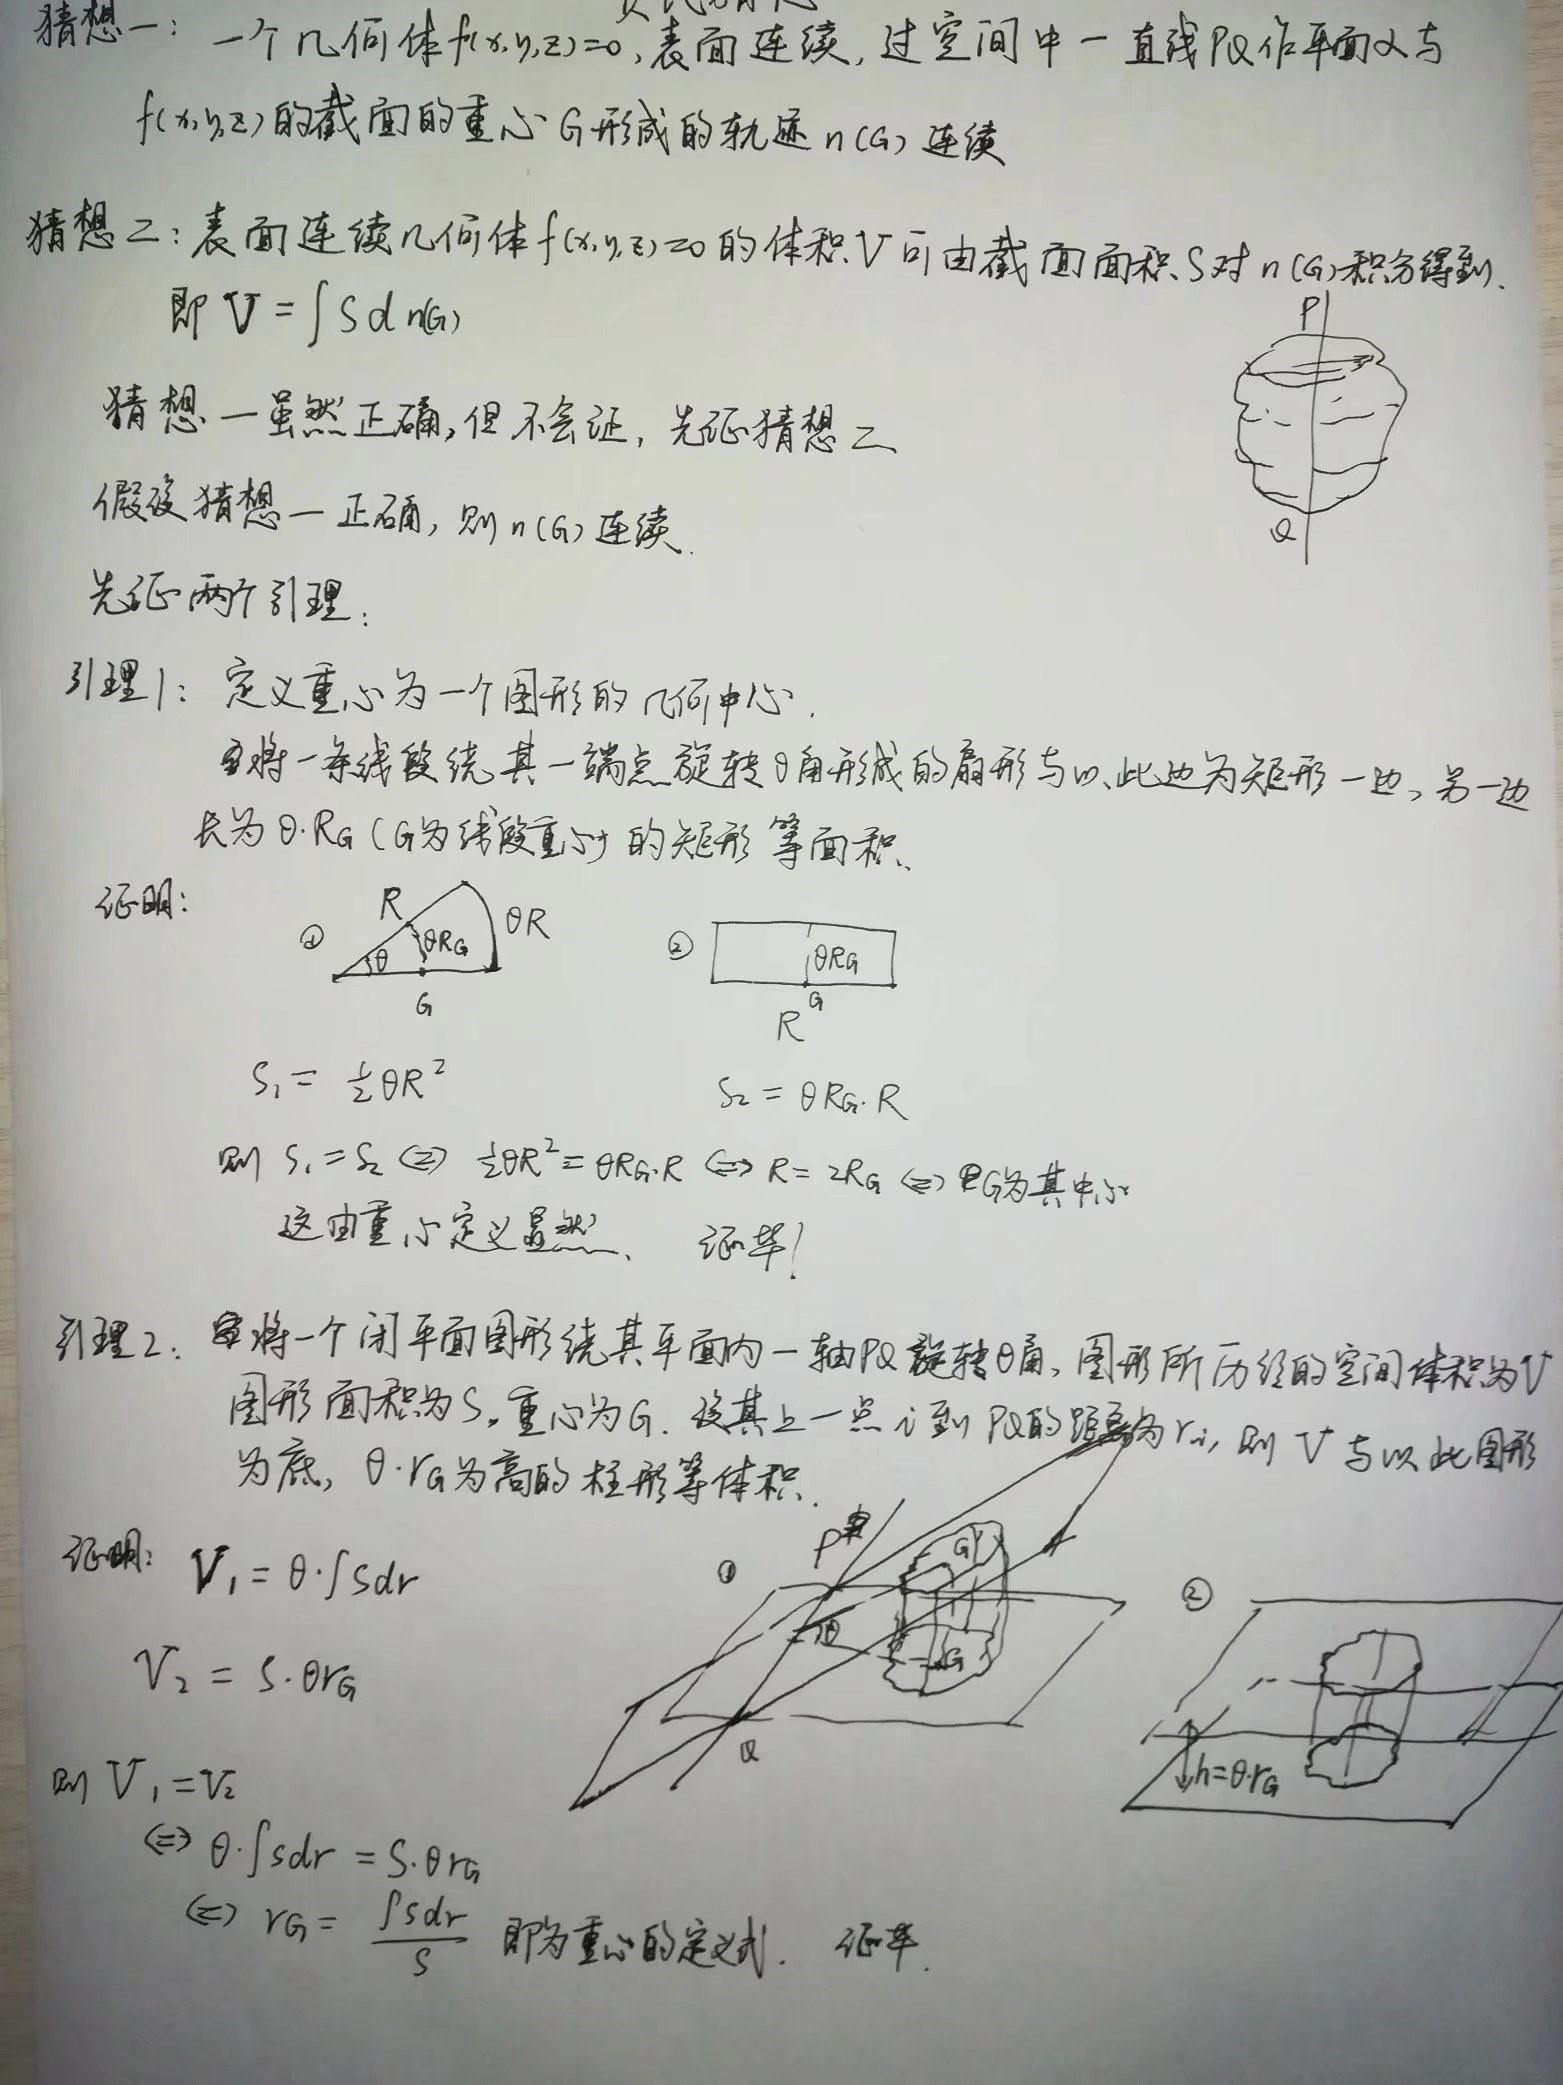 猜想一：一个几何体f(x,y,z)=0,表面连续,过空间中一直线PQ作平面α与
f(x,y,z)的截面的重心G形成的轨迹n(G)连续
猜想二：表面连续几何体f(x,y,z)=0的体积V可由截面面积S对n(G)积分得到.
即 V=∫Sdn(G)
P
Q
猜想一虽然正确,但不会证,先证猜想二
假设猜想一正确,则n(G)连续.
先证两个引理：
引理1：定义重心为一个图形的几何中心.
将一条线段绕其一端点旋转θ角形成的扇形与以此边为矩形一边,另一边
长为θ·RG(G为线段重心)的矩形等面积.
证明：
① R θ θRG θR G
② θRG G R
S1=½θR²
S2=θRG·R
则 S1=S2 <=> ½θR²=θRG·R <=> R=2RG <=> G为其中心
这由重心定义显然. 证毕!
引理2：将一个闭平面图形绕其平面内一轴PQ旋转θ角,图形所历经的空间体积为V
图形面积为S,重心为G.设其上一点i到PQ的距离为ri,则V与以此图形
为底,θ·rG为高的柱形等体积.
证明：V1=θ·∫sdr
① P θ G G Q
② h=θ·rG
V2=S·θrG
则 V1=V2
<=> θ·∫sdr=S·θrG
<=> rG=∫sdr/S 即为重心的定义式. 证毕.